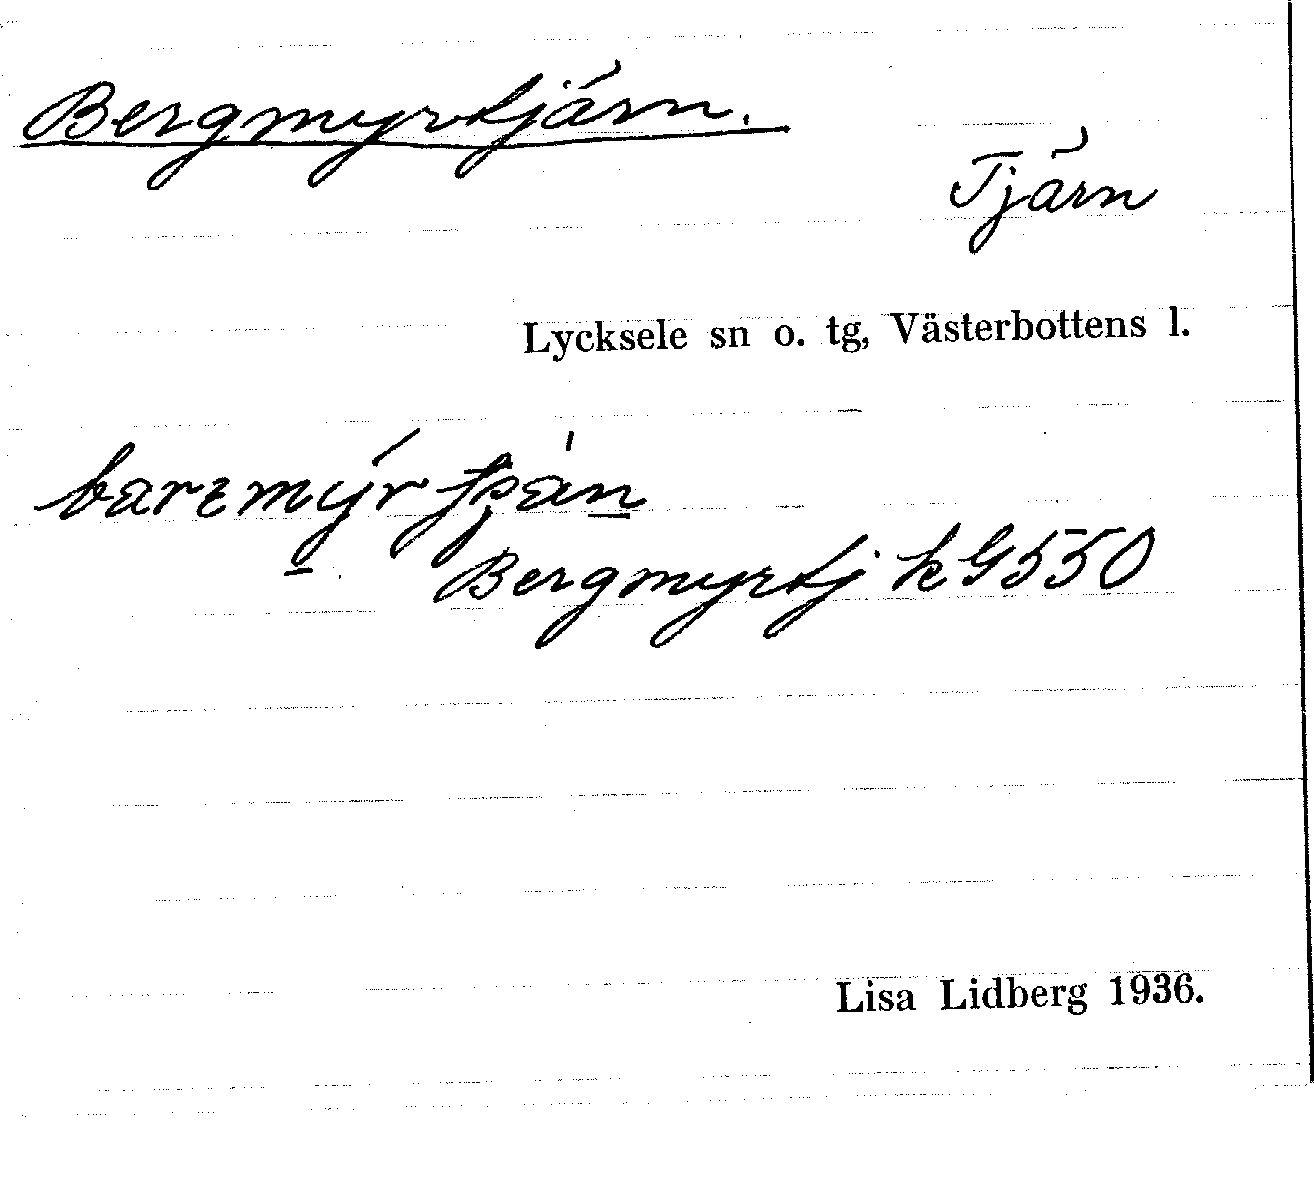 Bergmyrtjärn.
Tjärn
Lycksele sn o. tg, Västerbottens l.
Bergmyrtj k G 550
Lisa Lidberg 1936.